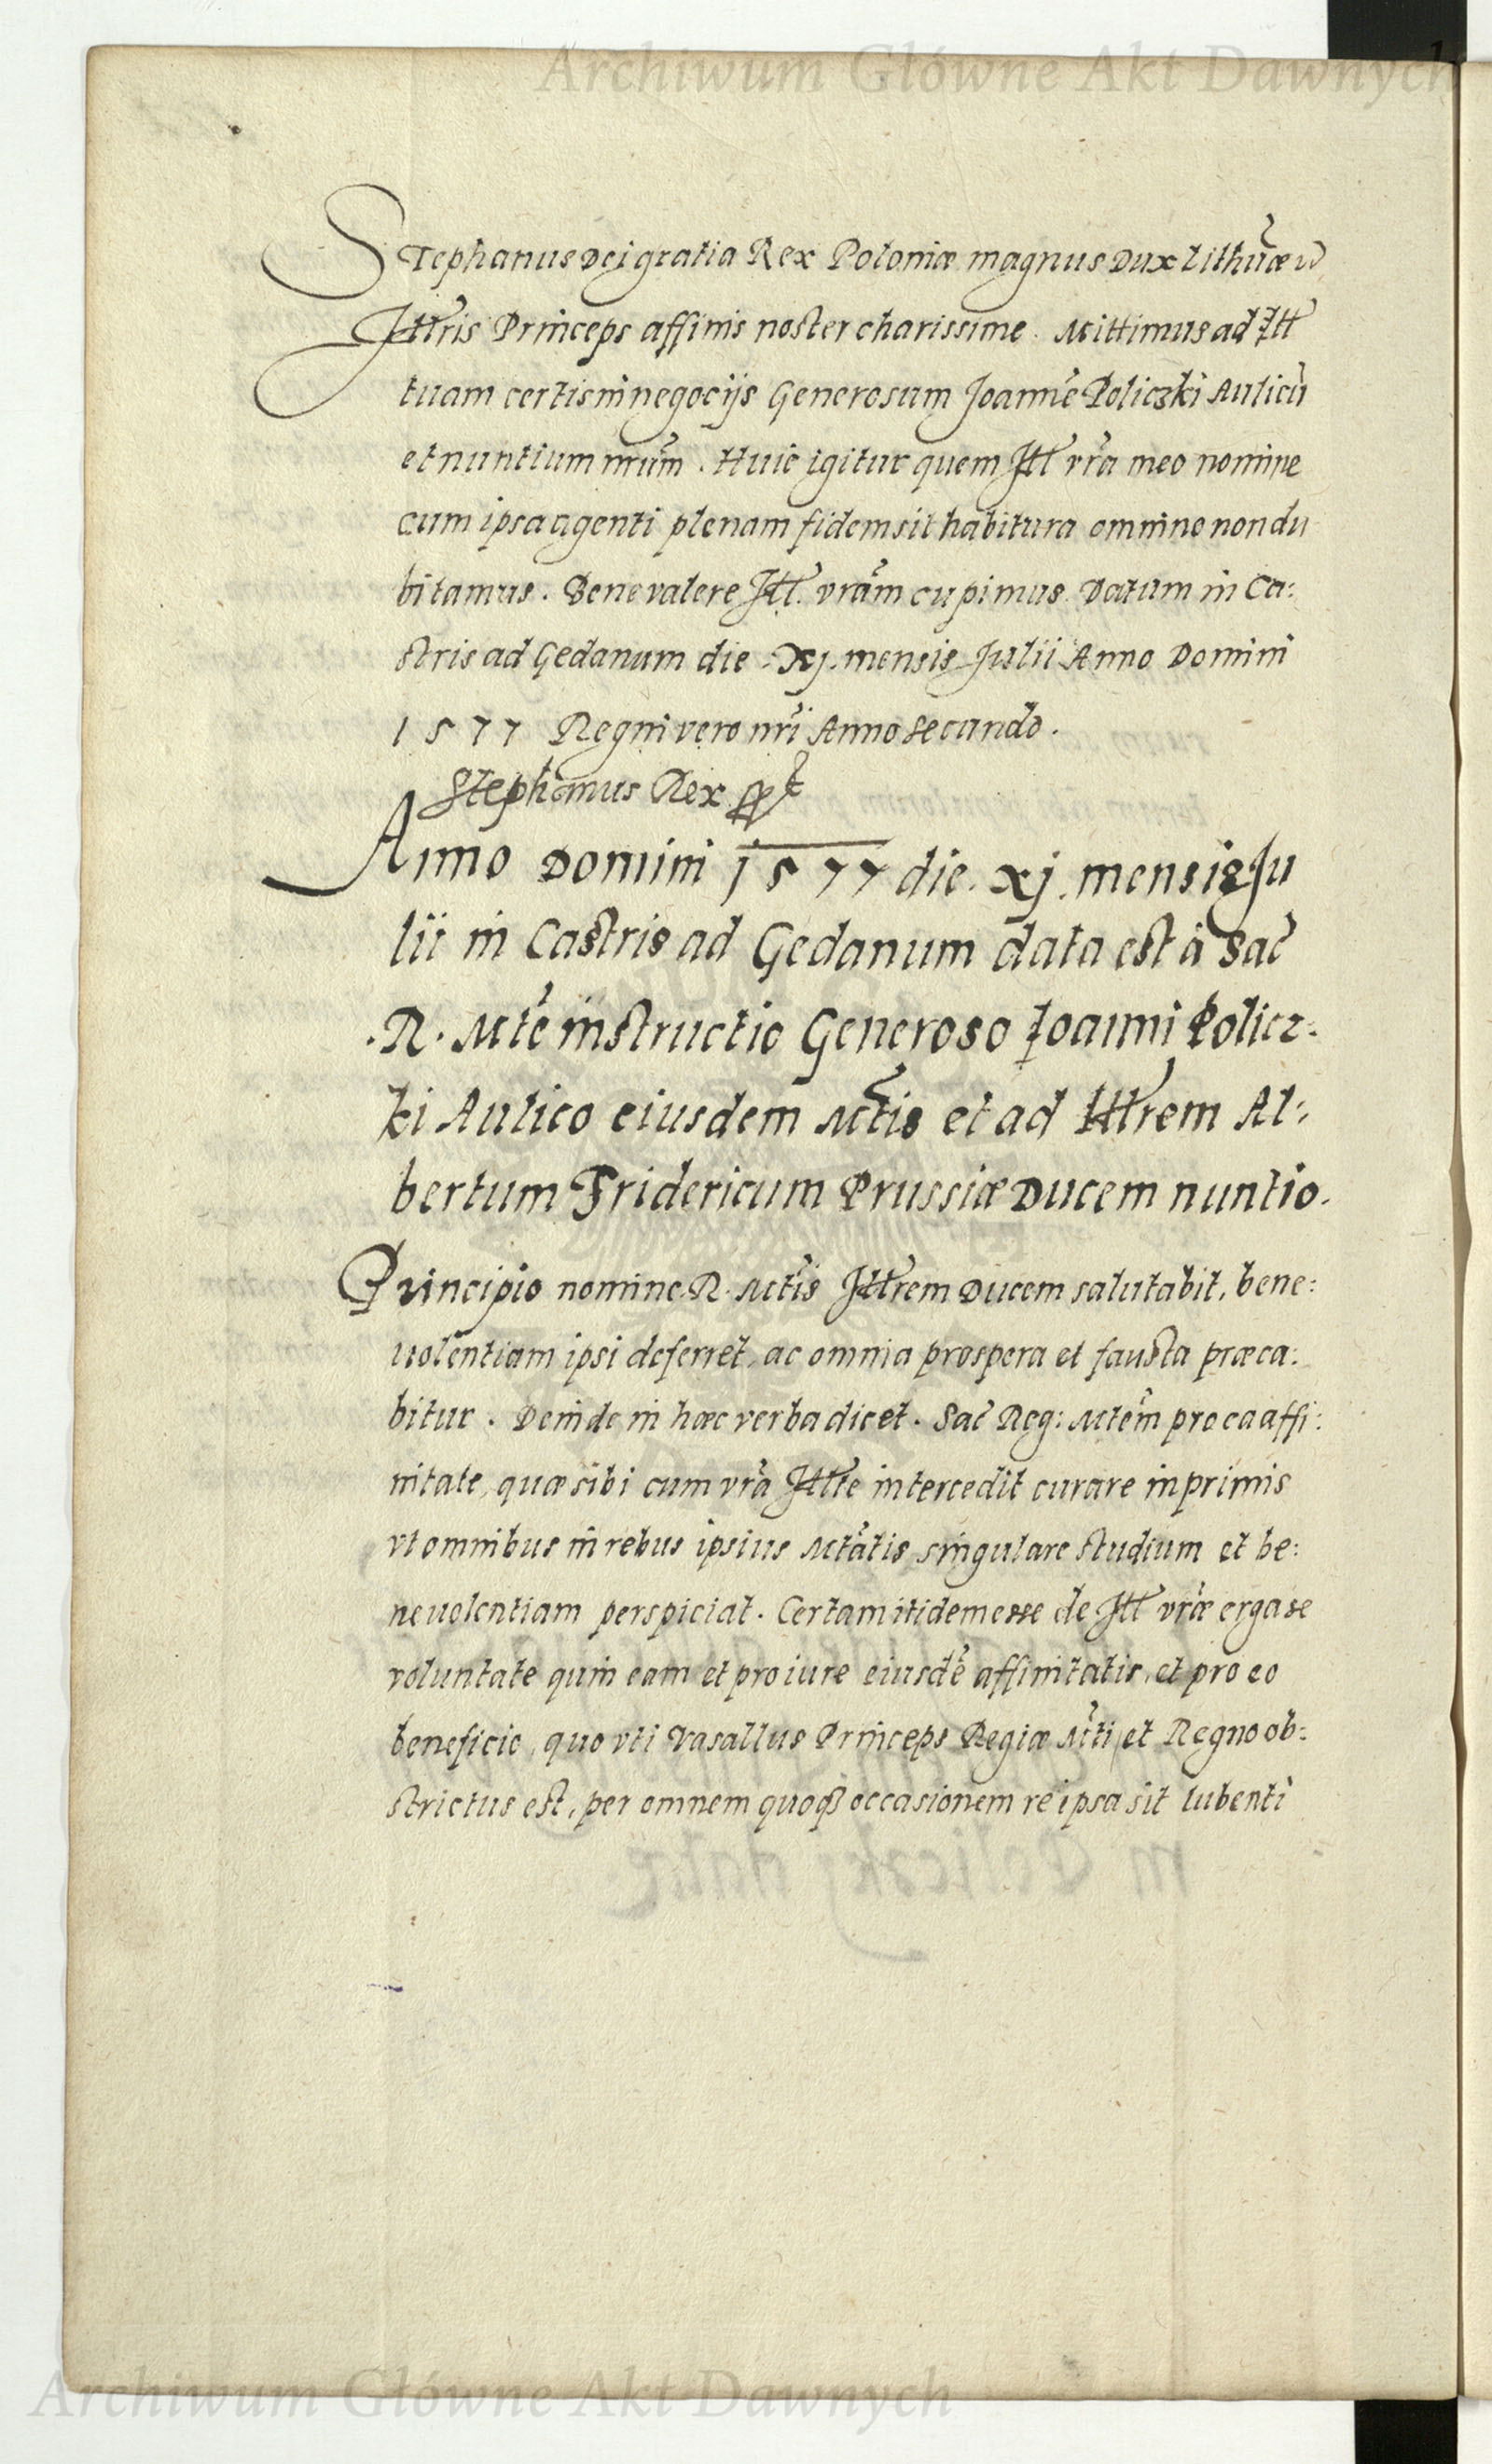 Archiwum Główne Akt Dawnych
Stephanus Dei gratia Rex Poloniæ magnus Dux Lithu̅æ
Illris Princeps affinis noster charissime. Mittimus ad Ill
tuam certis in negocijs Generosum Joanne̅ Policzki Aulicu̅
et nuntium nru̅m. Huic igitur quem Ill vr̅a meo nomine
cum ipsa agenti plenam fidem sit habitura omnino non du
bitamus. Bene valere Ill. vra̅m cupimus. Datum in Ca:
stris ad Gedanum die .Xj. mensis Julii Anno Domini
1577 Regni vero nr̅i Anno Secundo.
Stephanus Rex
Anno Domini 1577 die. xj. mensis Ju
lii in Castris ad Gedanum data est à Sac̅
.R. Mte̅ instructio Generoso Joanni Policz:
ki Aulico eiusdem Mt̅is et ad Illrem Al:
bertum Fridericum Prussiæ Ducem nuntio.
Principio nomine R. Mt̅is Illrem Ducem salutabit, bene:
uolentiam ipsi deferret, ac omnia prospera et fausta præca:
bitur. Deinde in hæc verba dicet. Sac̅ Reg: Mte̅m pro ea affi:
nitate, quæ sibi cum vr̅a Illte intercedit curare inprimis
vt omnibus in rebus ipsius Mta̅tis singulare studium et be:
neuolentiam perspiciat. Certam itidem esse de Ill vr̅æ erga se
voluntate quin eam et pro iure eiusde̅ affinitatis, et pro eo
beneficio, quo vti Vasallus Princeps Regiæ M̅ti et Regno ob:
strictus est, per omnem quoqꝫ occasionem re ipsa sit lubenti
Archiwum Główne Akt Dawnych